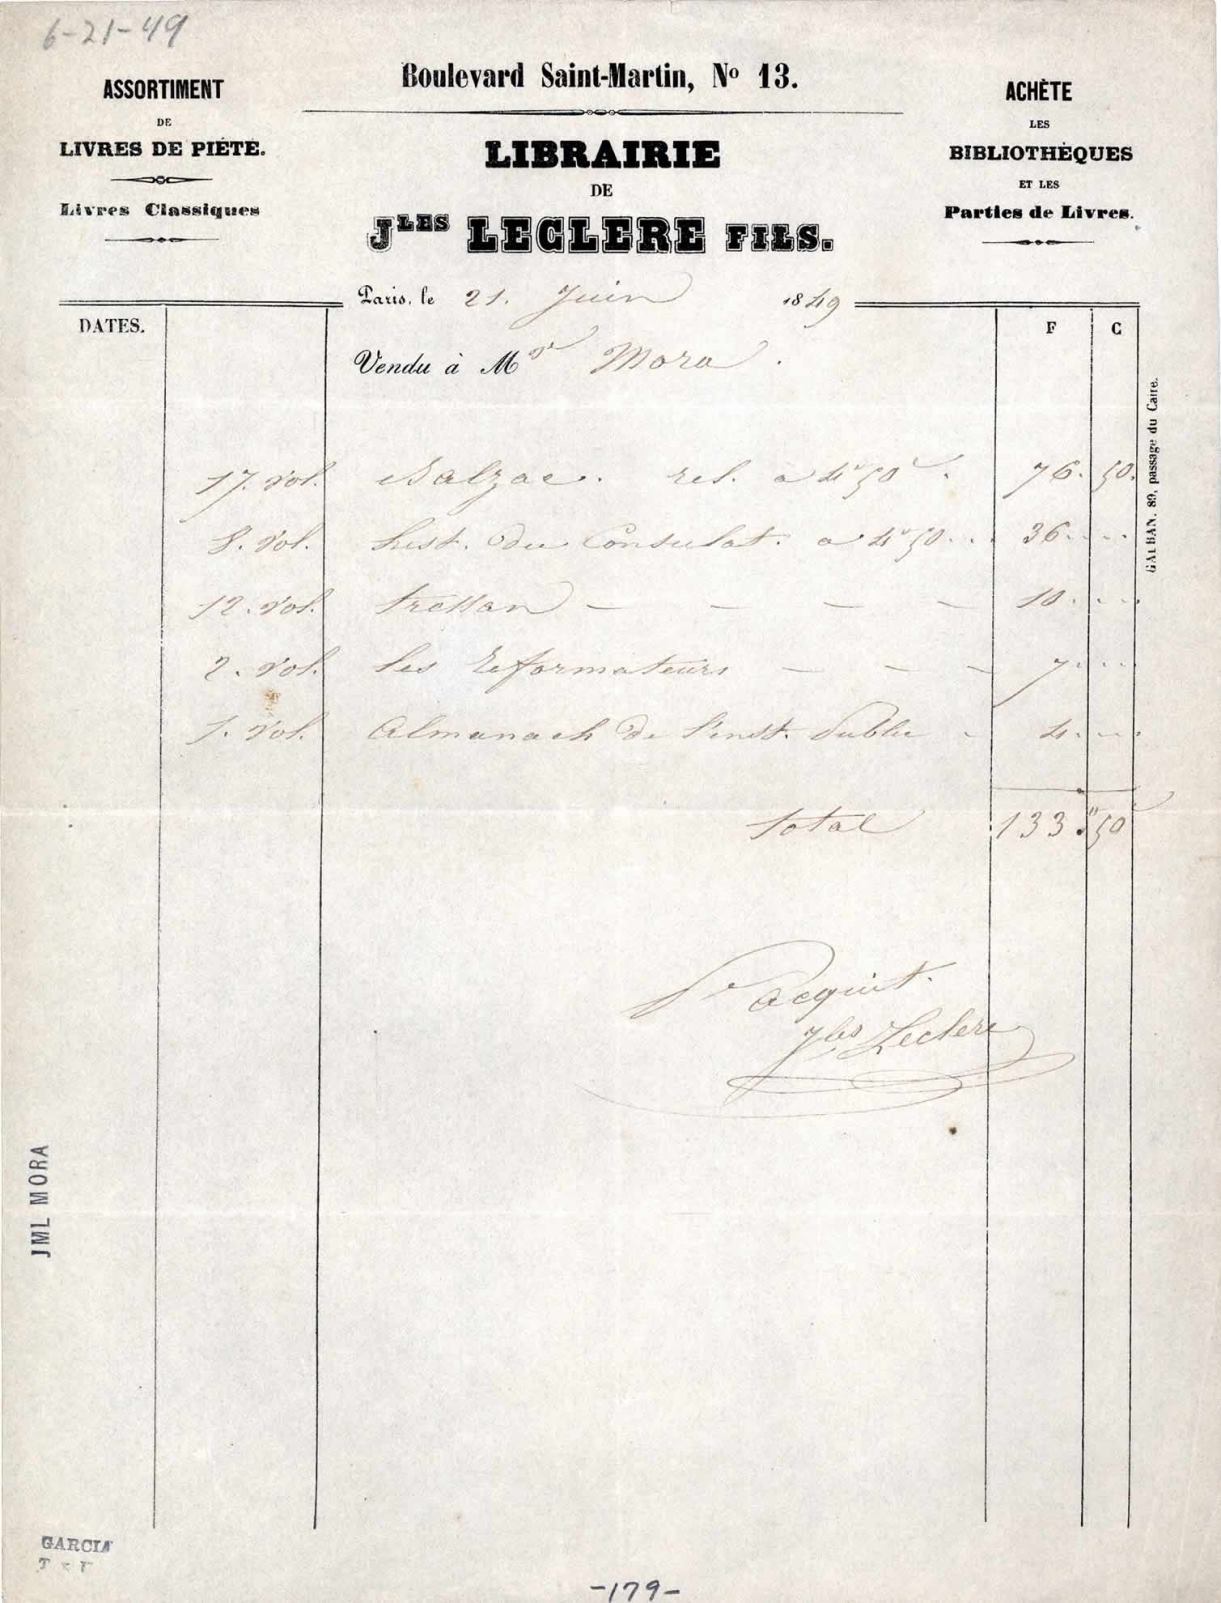 6-21-49
Boulevard Saint-Martin, No 13.
ASSORTIMENT
DE
LIVRES DE PIÉTÉ.
Livres Classiques
LIBRAIRIE
DE
Jles LECLERE FILS.
ACHÈTE
LES
BIBLIOTHÈQUES
ET LES
Parties de Livres.
Paris, le 21. Juin 1849
DATES. F C
Vendu à Mr Mora.
17. vol. Balzac. rel. a 4f 50c. 76. 50.
8. vol. hist. du Consulat. a 4f 50... 36. ...
12. vol. tressan — — — — 10. ...
2. vol. les reformateurs — — — 7. ...
1. vol. Almanach de l'inst. Publie - 4. ...
total 133. 50
Pr acquit.
Jles Leclere
GALBAN. 89, passage du Caire.
JML MORA
GARCIA
-179-